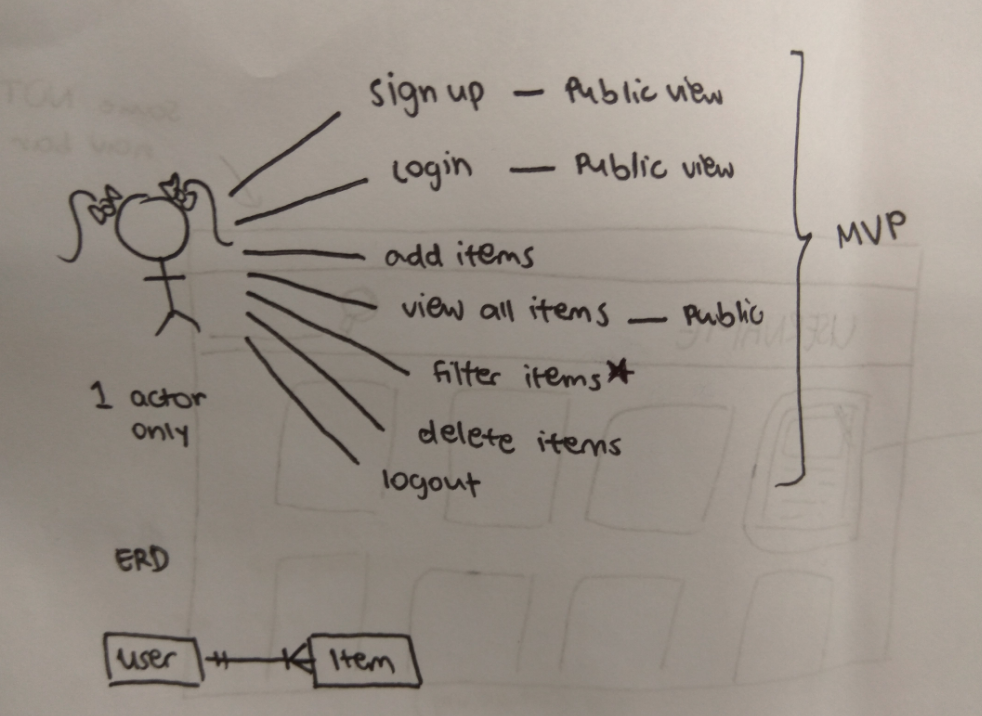 sign up — Public view
login — Public view
add items
view all items — Public
filter items*
delete items
logout
MVP
1 actor
only
ERD
user
Item
some NOT
nav bar
USERNAME